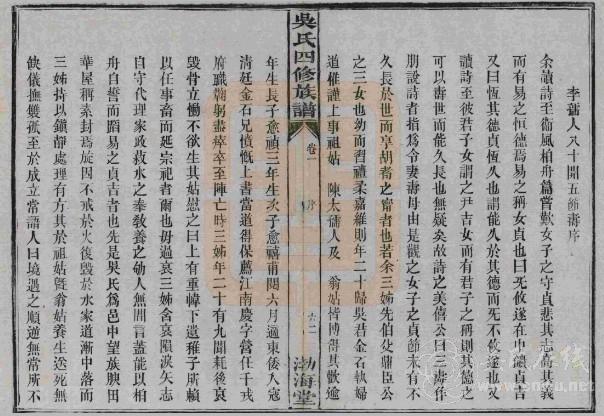 李孺人八十開五節壽序
余讀詩至衞風柏舟篇嘗歎女子之守貞悲其志尚其義
而有易之恒德焉易之稱女貞也曰无攸遂在中饋貞吉
又曰恆其德貞恆久也謂能久於其德而死不攸遂也又
讀詩至彼君子女謂之尹吉女而有君子之稱則其德之
可以壽世而能久長也無疑矣故詩之美僖公曰三壽作
朋說詩者指爲令妻壽母由是觀之女子之貞節未有不
久長於世而享胡耇之甯者也若余三姊先伯父鼎臣公
之三女也幼而習禮柔嘉維則年二十歸吳君金石執婦
道惟謹上事祖姑 陳太孺人及 翁姑皆博得其歡逾
吳氏四修族譜 卷一 序 六二 渤海堂
年生長子愈禎三年生次子愈禧甫閱六月適東倭人寇
清廷金石兄憤慨上書當道得保薦江南慶字營任千戎
府職鞠躬盡瘁卒至陣亡時三姊年二十有九聞耗後哀
毀骨立慟不欲生其姑慰之曰上有重幃下遺稚子所賴
以任事畜而延宗祀者爾也毋過哀三姊含哀隕淚矢志
自守代理家政菽水之奉敎養之劬人無間言蓋能以柏
舟自誓而蹈易之貞吉者也先是吳氏爲邑中望族腴田
華屋稱素封焉旋因不戒於火後毀於水家道漸中落而
三姊持以鎮靜處理有方其於祖姑曁翁姑養生送死無
缺儀撫雙孤至於成立常語人曰境遇之順逆無常所不